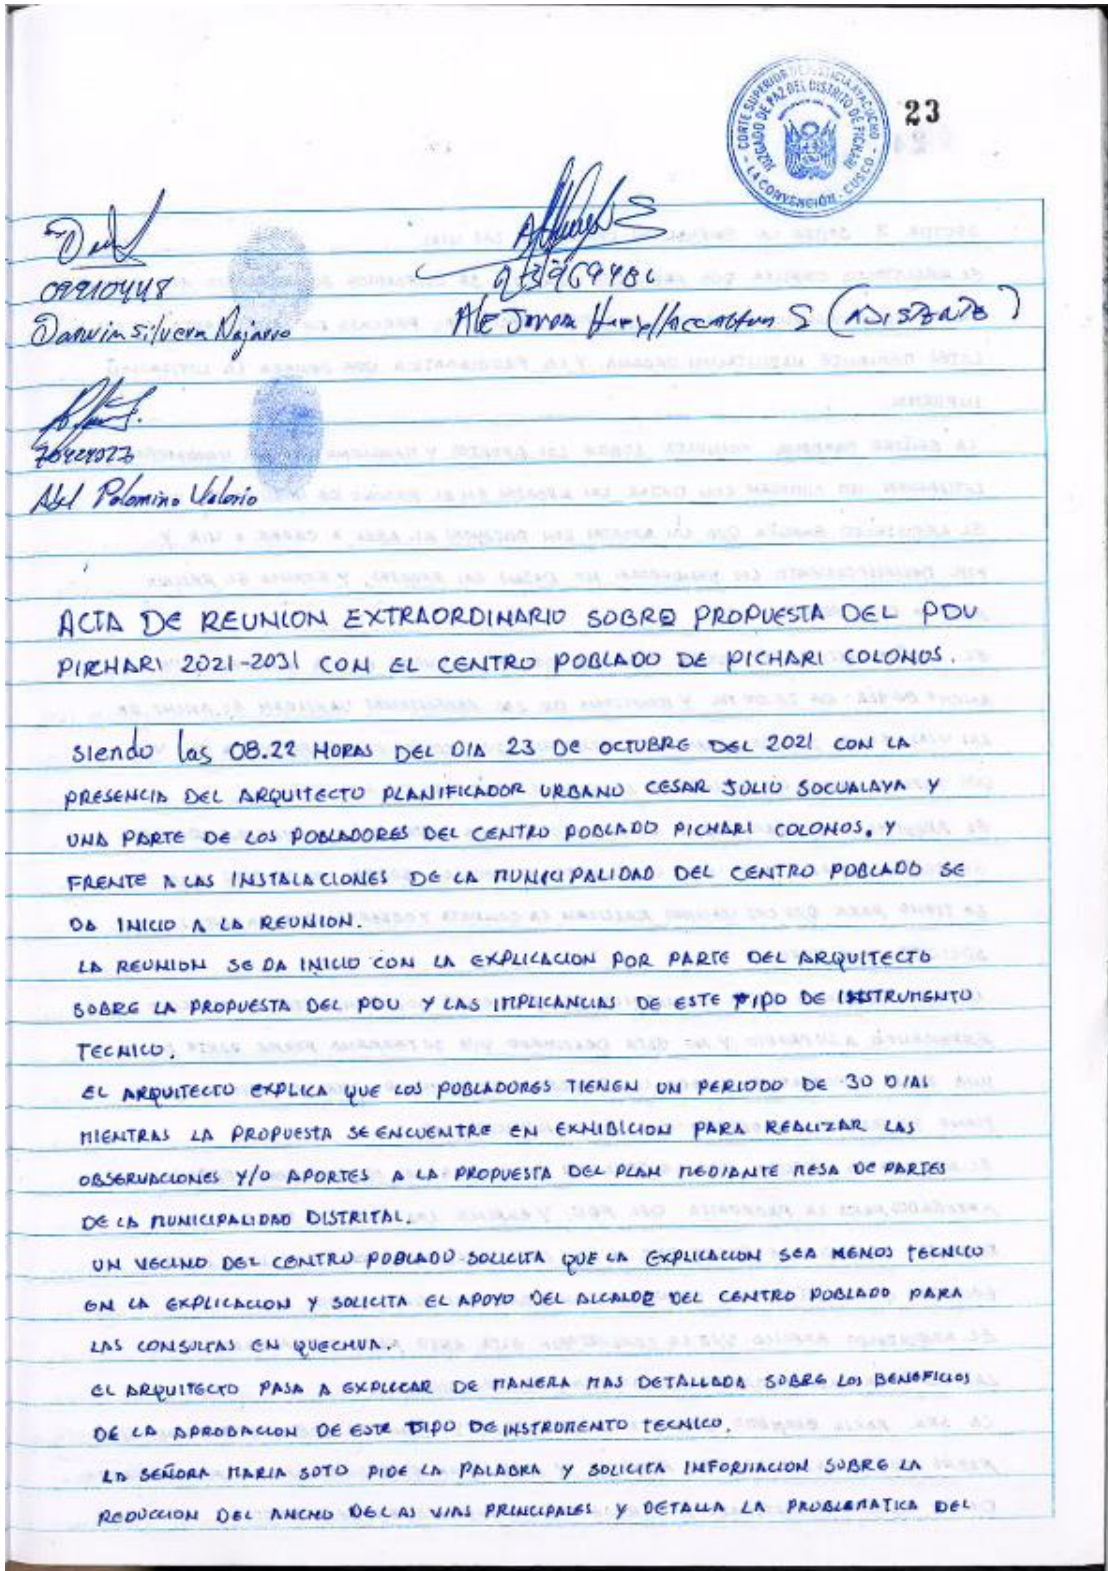 CORTE SUPERIOR DE JUSTICIA AYACUCHO
JUZGADO DE PAZ DEL DISTRITO DE PICHARI
LA CONVENCIÓN - CUSCO
23
09910448
Darwin Silvera Najarro
(ASISTENTE)
Abel Palomino Valerio
ACTA DE REUNION EXTRAORDINARIO SOBRE PROPUESTA DEL PDU
PIRCHARI 2021-2031 CON EL CENTRO POBLADO DE PICHARI COLONOS.
siendo las 08.22 HORAS DEL DIA 23 DE OCTUBRE DEL 2021 CON LA
PRESENCIA DEL ARQUITECTO PLANIFICADOR URBANO CESAR JULIO SOCUALAYA Y
UNA PARTE DE LOS POBLADORES DEL CENTRO POBLADO PICHARI COLONOS. Y
FRENTE A LAS INSTALACIONES DE LA MUNICIPALIDAD DEL CENTRO POBLADO SE
DA INICIO A LA REUNION.
LA REUNION SE DA INICIO CON LA EXPLICACION POR PARTE DEL ARQUITECTO
SOBRE LA PROPUESTA DEL PDU Y LAS IMPLICANCIAS DE ESTE TIPO DE INSTRUMENTO
TECNICO.
EL ARQUITECTO EXPLICA QUE LOS POBLADORES TIENEN UN PERIODO DE 30 DIAS
MIENTRAS LA PROPUESTA SE ENCUENTRE EN EXHIBICION PARA REALIZAR LAS
OBSERVACIONES Y/O APORTES A LA PROPUESTA DEL PLAN MEDIANTE MESA DE PARTES
DE LA MUNICIPALIDAD DISTRITAL.
UN VECINO DEL CENTRO POBLADO SOLICITA QUE LA EXPLICACION SEA MENOS TECNICO
EN LA EXPLICACION Y SOLICITA EL APOYO DEL ALCALDE DEL CENTRO POBLADO PARA
LAS CONSULTAS EN QUECHUA.
EL ARQUITECTO PASA A EXPLICAR DE MANERA MAS DETALLADA SOBRE LOS BENEFICIOS
DE LA APROBACION DE ESTE TIPO DE INSTRUMENTO TECNICO.
LA SEÑORA MARIA SOTO PIDE LA PALABRA Y SOLICITA INFORMACION SOBRE LA
REDUCCION DEL ANCHO DE LAS VIAS PRINCIPALES Y DETALLA LA PROBLEMATICA DEL